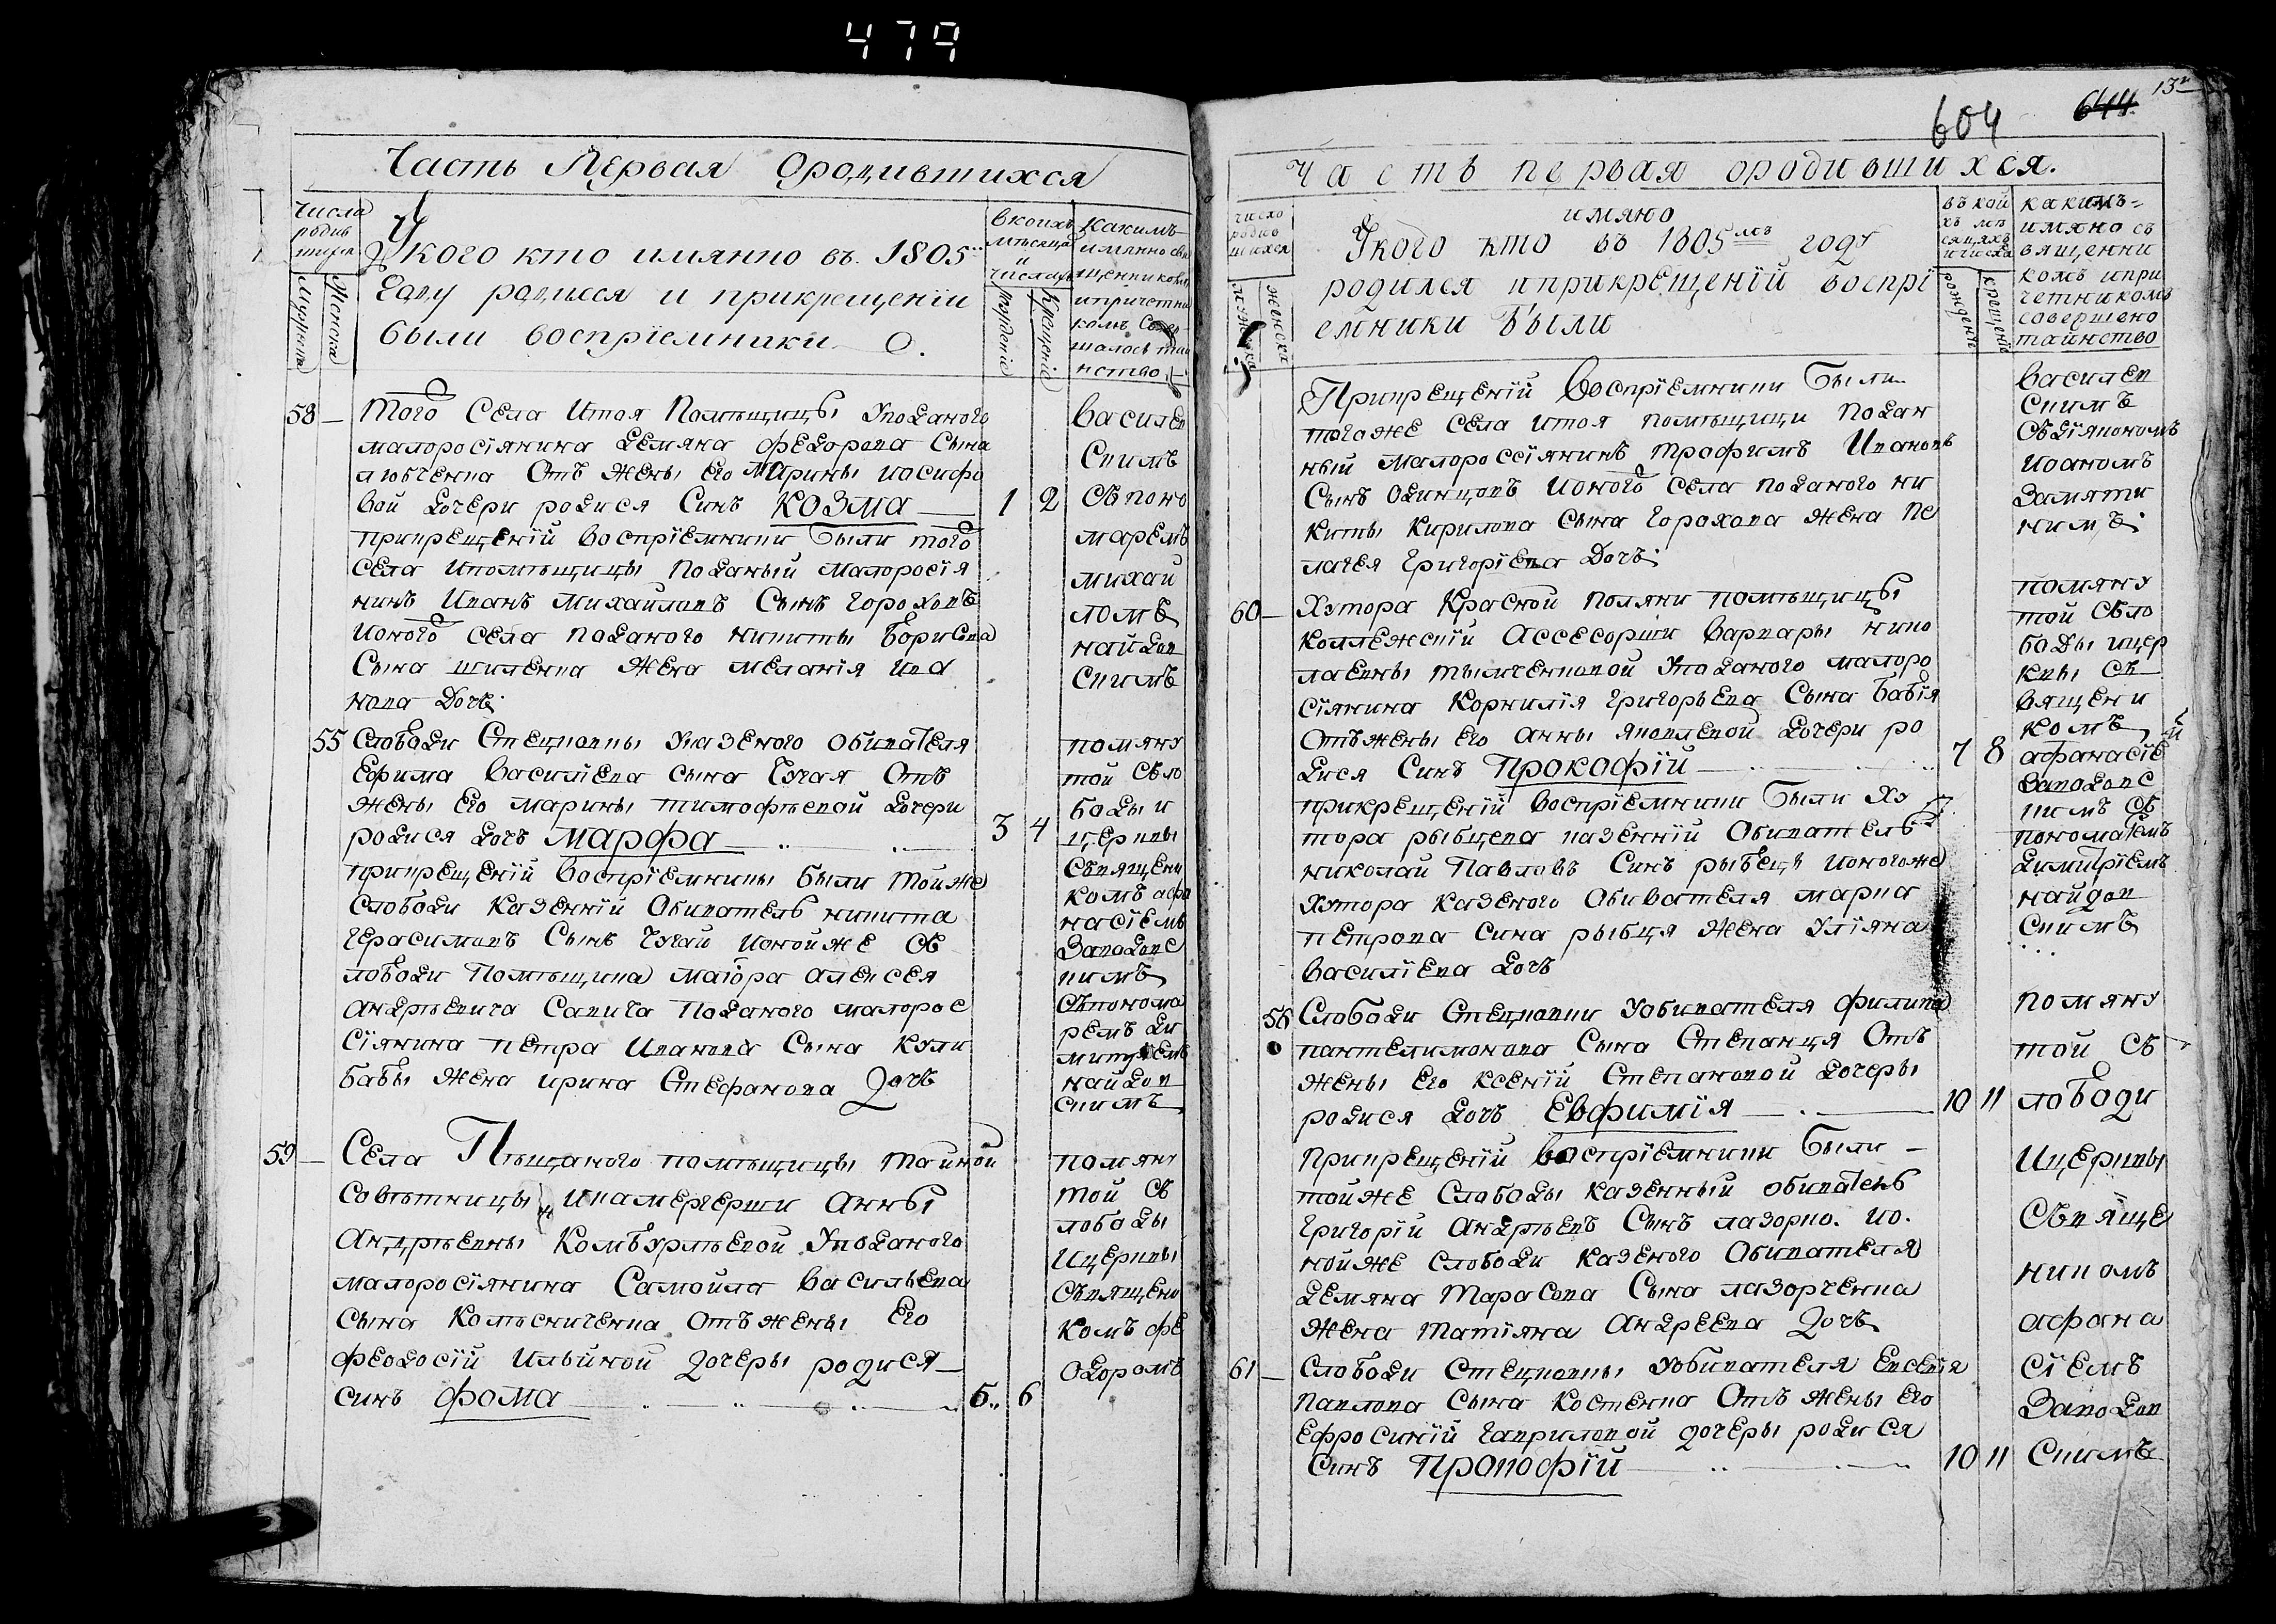 479
Часть Первая Ородившихся
Числа родив шихся
Мужеска
Женска
У кого кто имянно въ 1805
Году родился и прикрещеніи
были воспріемники
вкоихъ мѣсяцах и числах
Рожденіе
Крещеніе
Какимъ
имянно свя
щенникомъ
ипричетни
комъ Совер
шалось таи
нство
58
Того Села Итоя Помѣщицы Уподаного
малоросіянина Семяна Федорова Сына
любченка Отъ жены его Марины иосифо
вой дочери родися Синъ Козма
1 2
прикрещеній воспріемники были того
села ипомѣщицы поданый малоросія
нинъ Иванъ Михайловъ Сынъ горохов
ионого села поданого никиты Борисова
Сына шиленка жена меланія ива
нова Дочь
василев
скимъ
съ поно
маремъ
михаи
ломъ
найдов
скимъ
55
Слободи Стецковки Указеного Обивателя
Ефима василіева сына Чугая Отъ
жены его марины тимофѣевой дочери
родися дочь Марфа
3 4
прикрещеній воспріемники были тойже
слободи казенній Обиватель никита
герасимовъ Сынъ Чугай ионойже Сѣ
лободи Помѣщика маіора алексея
андрѣевича Савича поданого малорос
сіянина петра Иванова Сына Кули
бабы жена ирина Стефанова дочь
помяну
той Сѣло
боды и
церквы
Священи
комъ афа
насіемъ
Заводовс
кимъ
Сѣпонома
ремъ Ди
митріемъ
найдов
скимъ
59
Села Пѣщаного помѣщицы тайной
Совѣтницы икамергерши Анны
Андрѣевны Комбурлѣевой Уподаного
малоросіянина Самойла Васильева
Сына Колѣсниченка отъ жены Его
феодосій Ильиной дочеры родися
синъ Фома
5 6
помяну
той Сѣ
лободы
Ицерквы
Священи
комъ фе
одоромъ
13
604
644
Часть первая ородившихся.
число родив шихся
мужеска
женска
имяно
Укого кто въ 1805 мъ году
родился иприкрещеній воспрі
емники Были
въ кои хъ мѣ сяцахъ ичисла
рожденіе
крещеніе
какимъ
имяно съ
вященни
комъ ипри
четникомъ
совершено
таинство
Прикрещеній Воспріемники Были
тогоже села итоя помѣщици подан
ный малороссіянинъ трофимъ Ивановъ
Сынъ одинцовъ ионого села поданого ни
киты кирилова сына горохова жена пе
лагея Григоріева Дочь
василев
скимъ
Съдіякономъ
иоаномъ
Замяти
нимъ
60
Хутора Красной поляни помѣщицы
коллежсній Ассесорши варвары нико
лаевны тымченковой Уподаного малоро
сіянина Корнилія Григорьева Сына бабія
Отъжены его анны яковлевой дочери ро
дися Синъ Прокофій
7 8
прикрещеній воспріемники были ху
тора рыбцева казенній Обиватель
николай Павловъ Синъ рыбецъ ионогоже
хутора казеного Обивателя марка
петрова сина рыбця жена Уліяна
василіева дочь
помяну
той Сѣло
боды ицер
квы Сѣ
вящени
комъ
афанасіе
Заводовс
кимъ Съ
пономаремъ
димитріемъ
найдов
скимъ
56
Слободи Стецковки Уобивателя филипа
пантелимонова Сына Степанця Отъ
жены его ксеній Степановой дочеры
родися дочь Евфимія
10 11
прикрещеній воспріемники были
тойже слободы казенный обиватель
григорій андрѣевъ Сынъ лазорко. ио.
нойже слободи казеного Обивателя
Семяна Тарасова Сына лазорченка
жена татіяна Андреева дочь
61
Слободи Стецковкы Уобивателя Евсевія
павлова Сына Костенка Отъ жены его
ефросиній гавриловой дочеры родися
синъ Прокофій
10 11
помяну
той Сѣ
лободи
Ицерквы
Свяще
никомъ
афана
сіемъ
Заводов
Скимъ